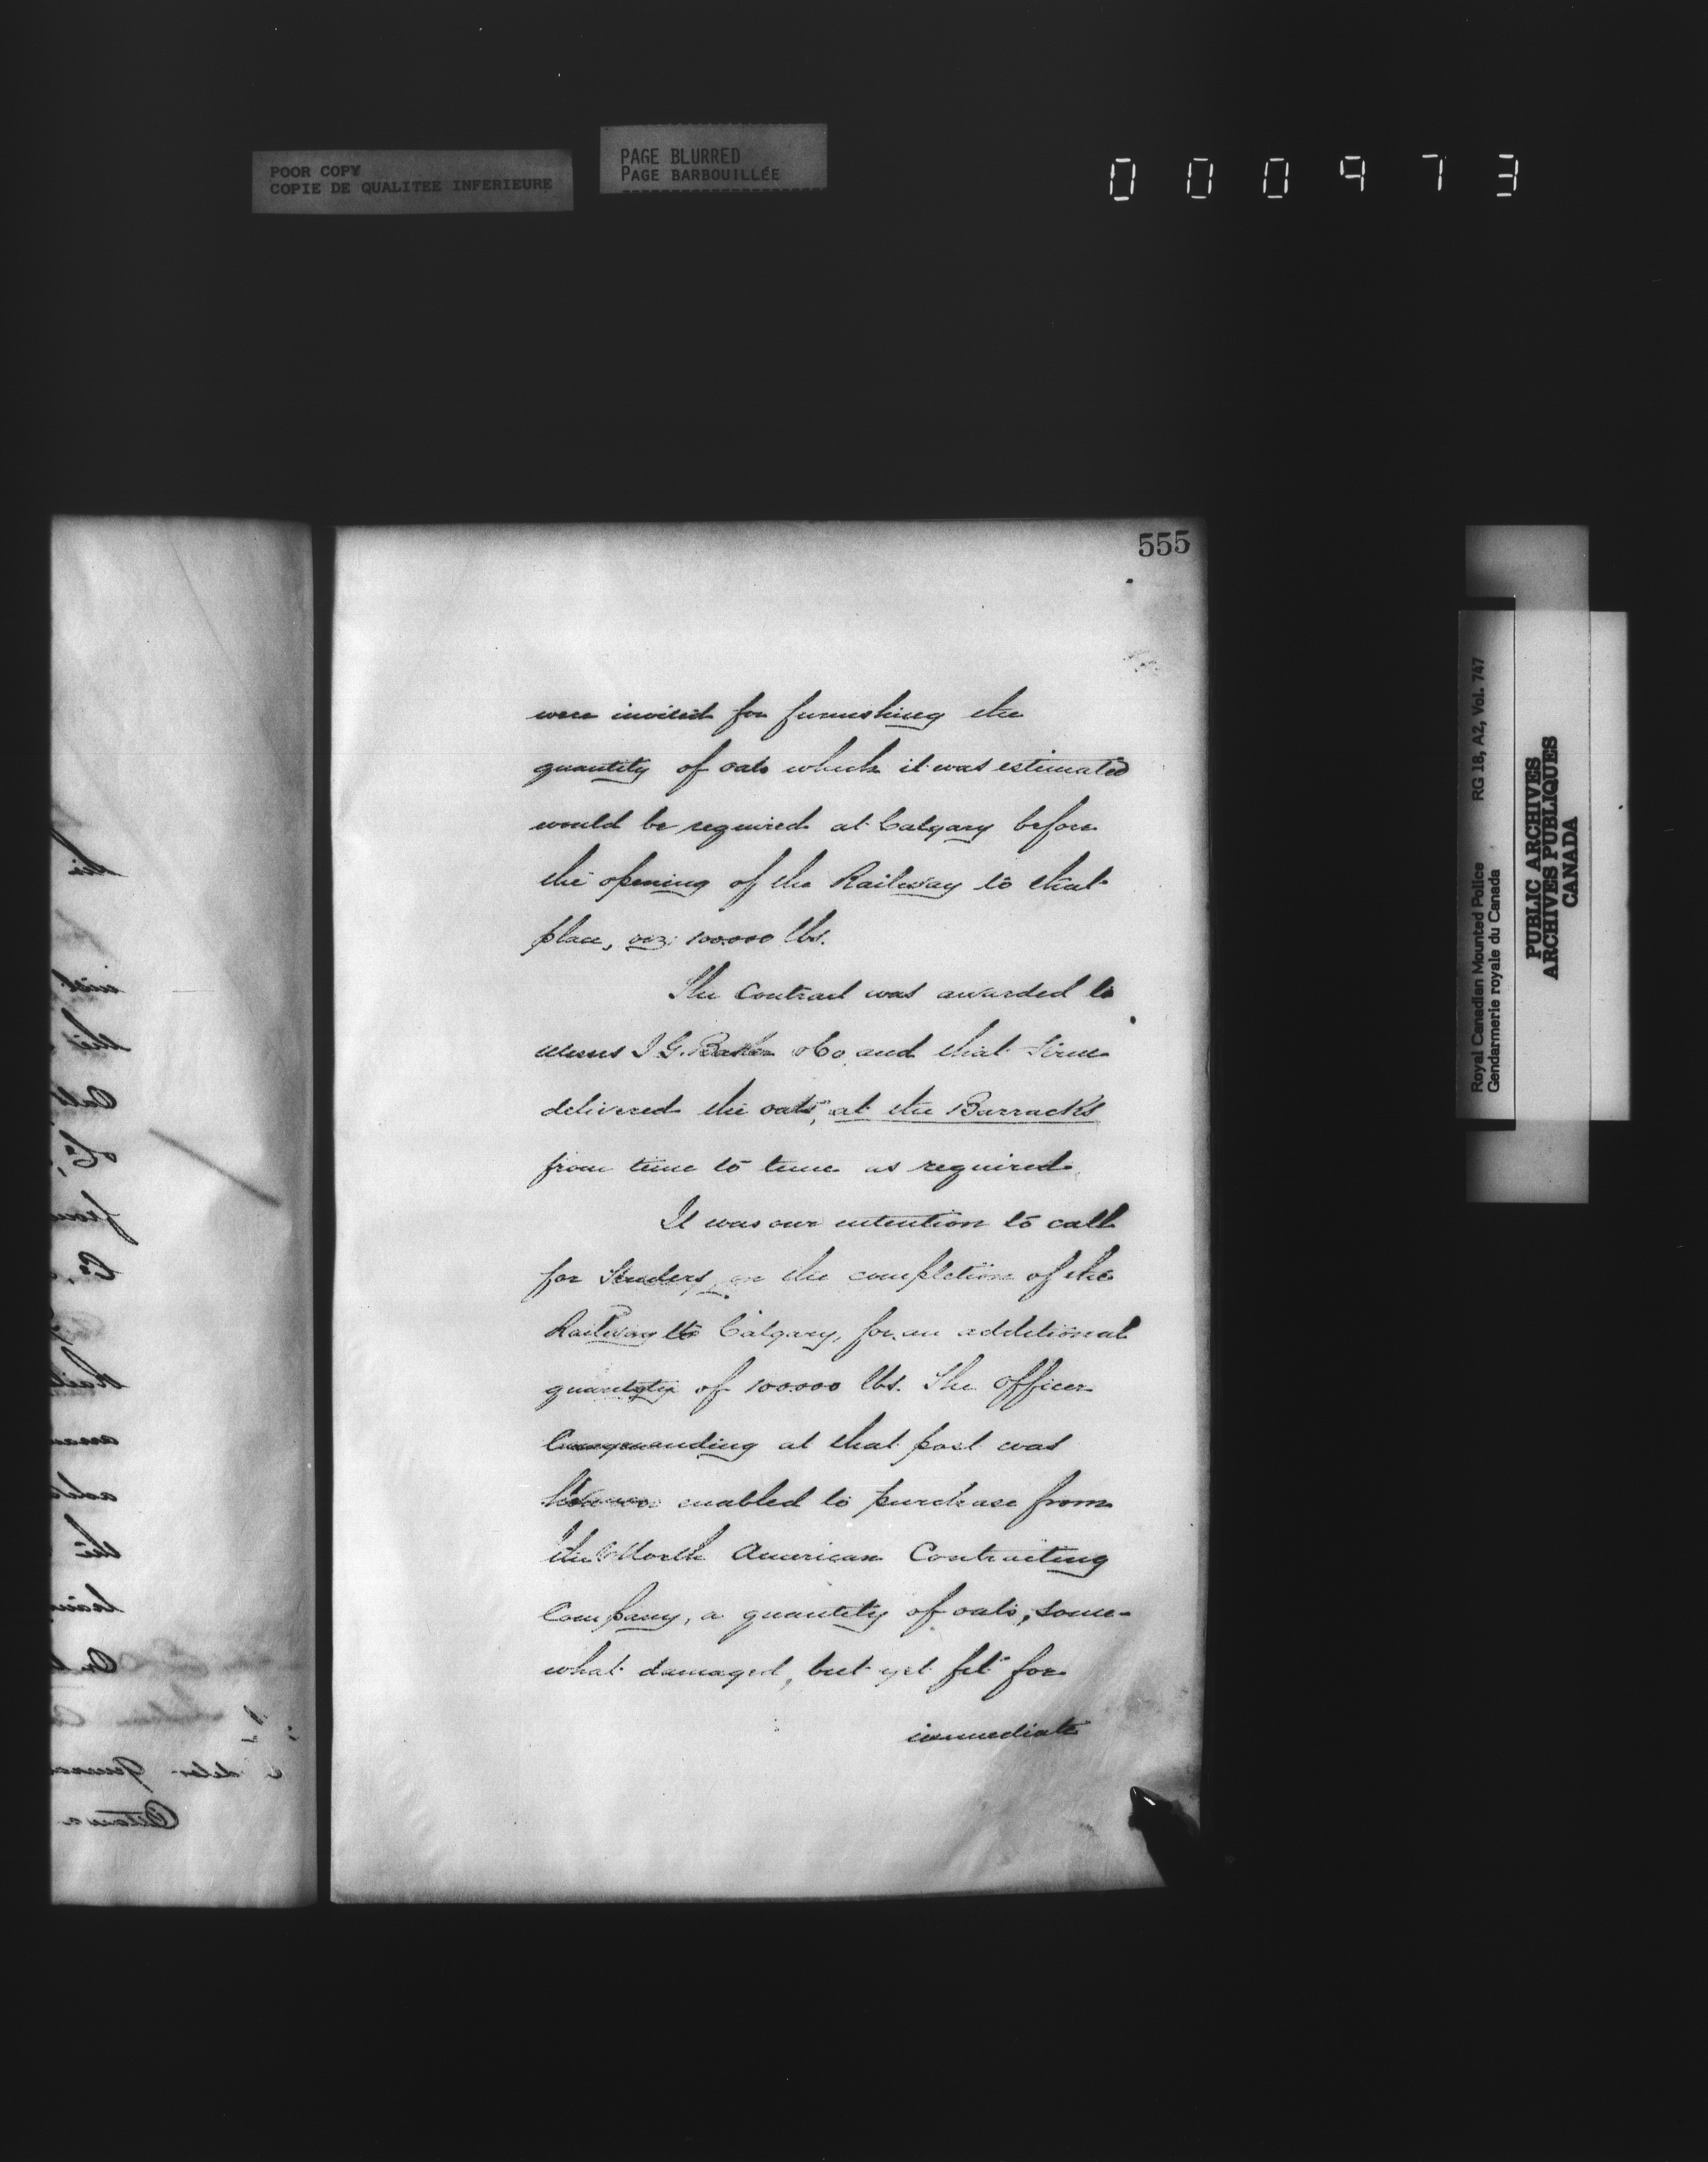 POOR COPY
COPIE DE QUALITEE INFERIEURE
PAGE BLURRED
PAGE BARBOUILLÉE
000973
555
were invited for furnishing the
quantity of oats which it was estimated
would be required at Calgary before
the opening of the Railway to that
place, viz: 100.000 lbs.
The Contract was awarded to
Messrs I. G. Baker & Co. and that firm
delivered the oats, at the Barracks
from time to time as required.
It was our intention to call
for Tenders, on the completion of the
Railway to Calgary, for an additional
quantity of 100.000 lbs. The Officer
Commanding at that post was
however enabled to purchase from
the North American Contracting
Company, a quantity of oats, some-
what damaged, but yet fit for
immediate
Royal Canadian Mounted Police RG 18, A2, Vol. 747
Gendarmerie royale du Canada
PUBLIC ARCHIVES
ARCHIVES PUBLIQUES
CANADA